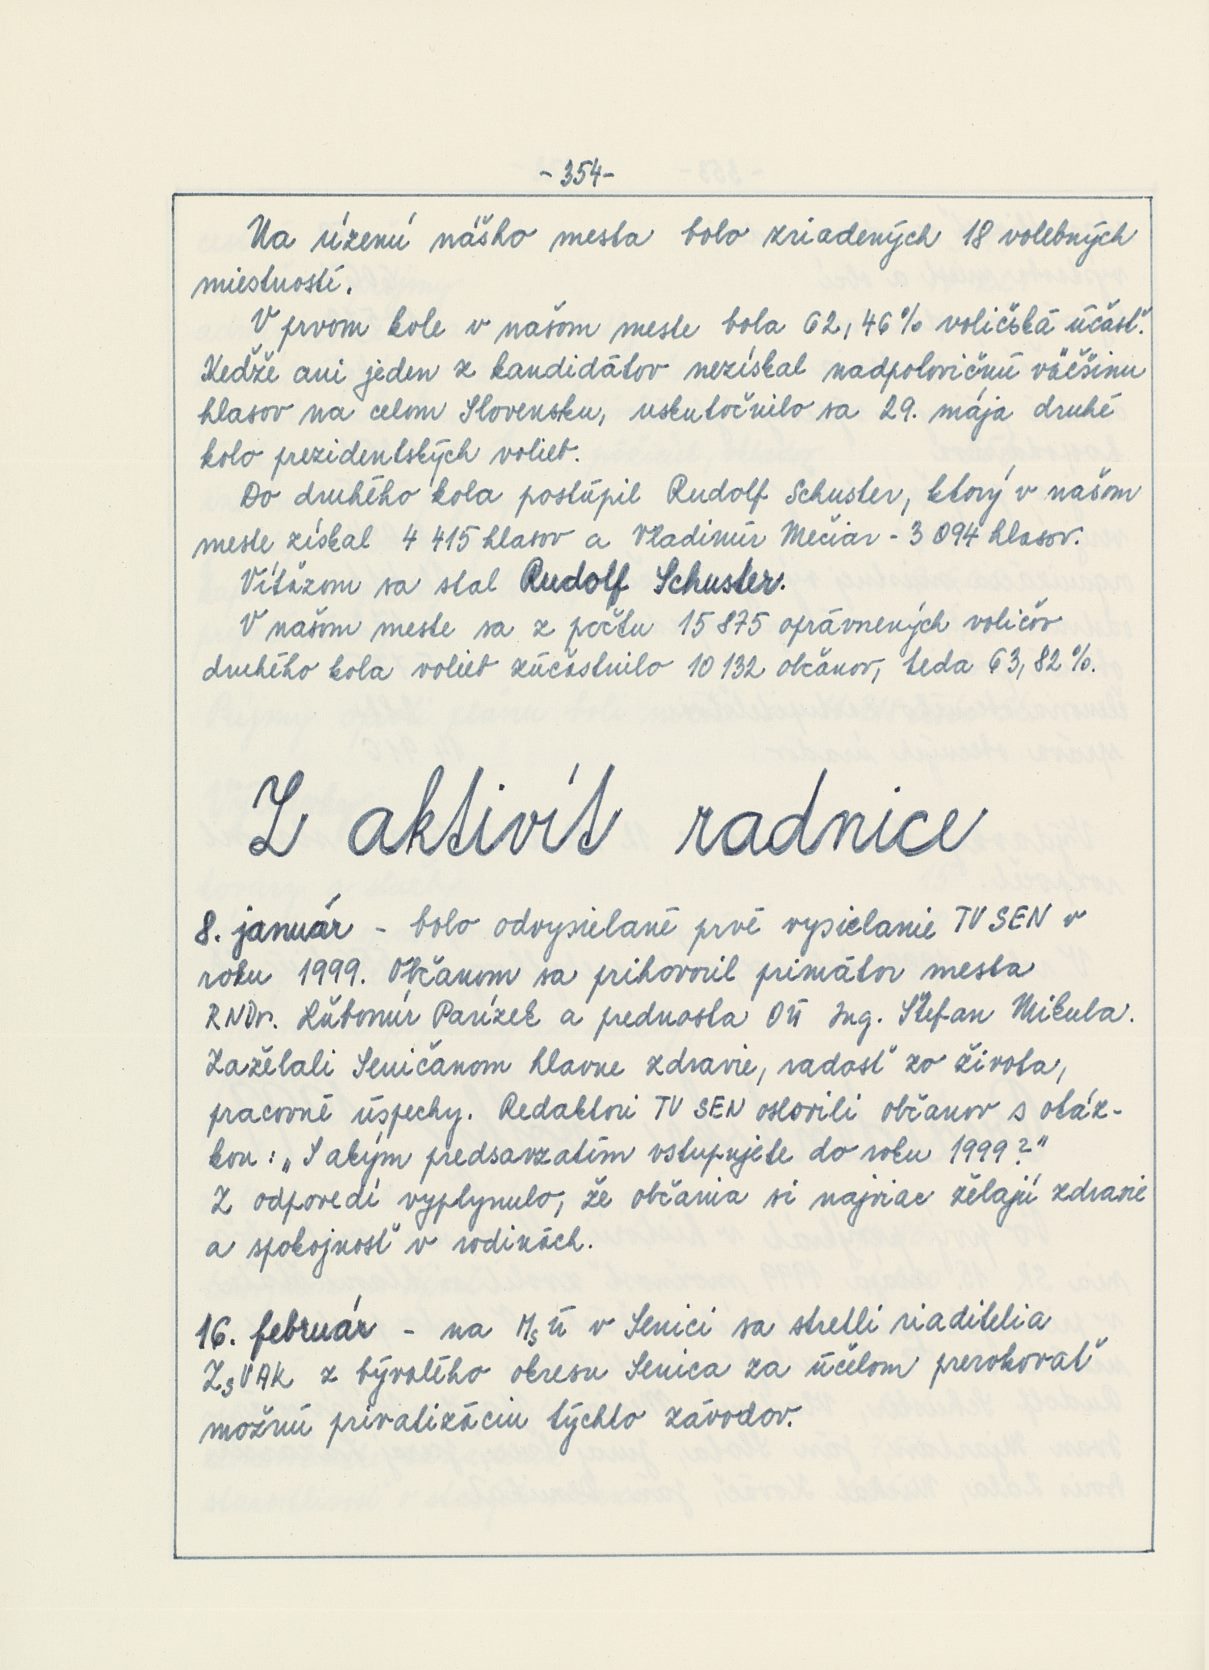 - 354 -
Na území nášho mesta bolo zriadených 18 volebných
miestností.
V prvom kole v našom meste bola 62,46% voličská účasť.
Keďže ani jeden z kandidátov nezískal nadpolovičnú väčšinu
hlasov na celom Slovensku, uskutočnilo sa 29. mája druhé
kolo prezidentských volieb.
Do druhého kola postúpil Rudolf Schuster, ktorý v našom
meste získal 4 415 hlasov a Vladimír Mečiar - 3 094 hlasov.
Víťazom sa stal Rudolf Schuster.
V našom meste sa z počtu 15 875 oprávnených voličov
druhého kola volieb zúčastnilo 10 132 občanov, teda 63,82%.
Z aktivít radnice
8. január - bolo odvysielané prvé vysielanie TV SEN v
roku 1999. Občanom sa prihovoril primátor mesta
RNDr. Ľubomír Parízek a prednosta OÚ Ing. Štefan Mikula.
Zaželali Seničanom hlavne zdravie, radosť zo života,
pracovné úspechy. Redaktori TV SEN oslovili občanov s otáz-
kou: „S akým predsavzatím vstupujete do roku 1999?"
Z odpovedí vyplynulo, že občania si najviac želajú zdravie
a spokojnosť v rodinách.
16. február - na MsÚ v Senici sa stretli riaditelia
ZsVAK z bývalého okresu Senica za účelom prerokovať
možnú privatizáciu týchto závodov.